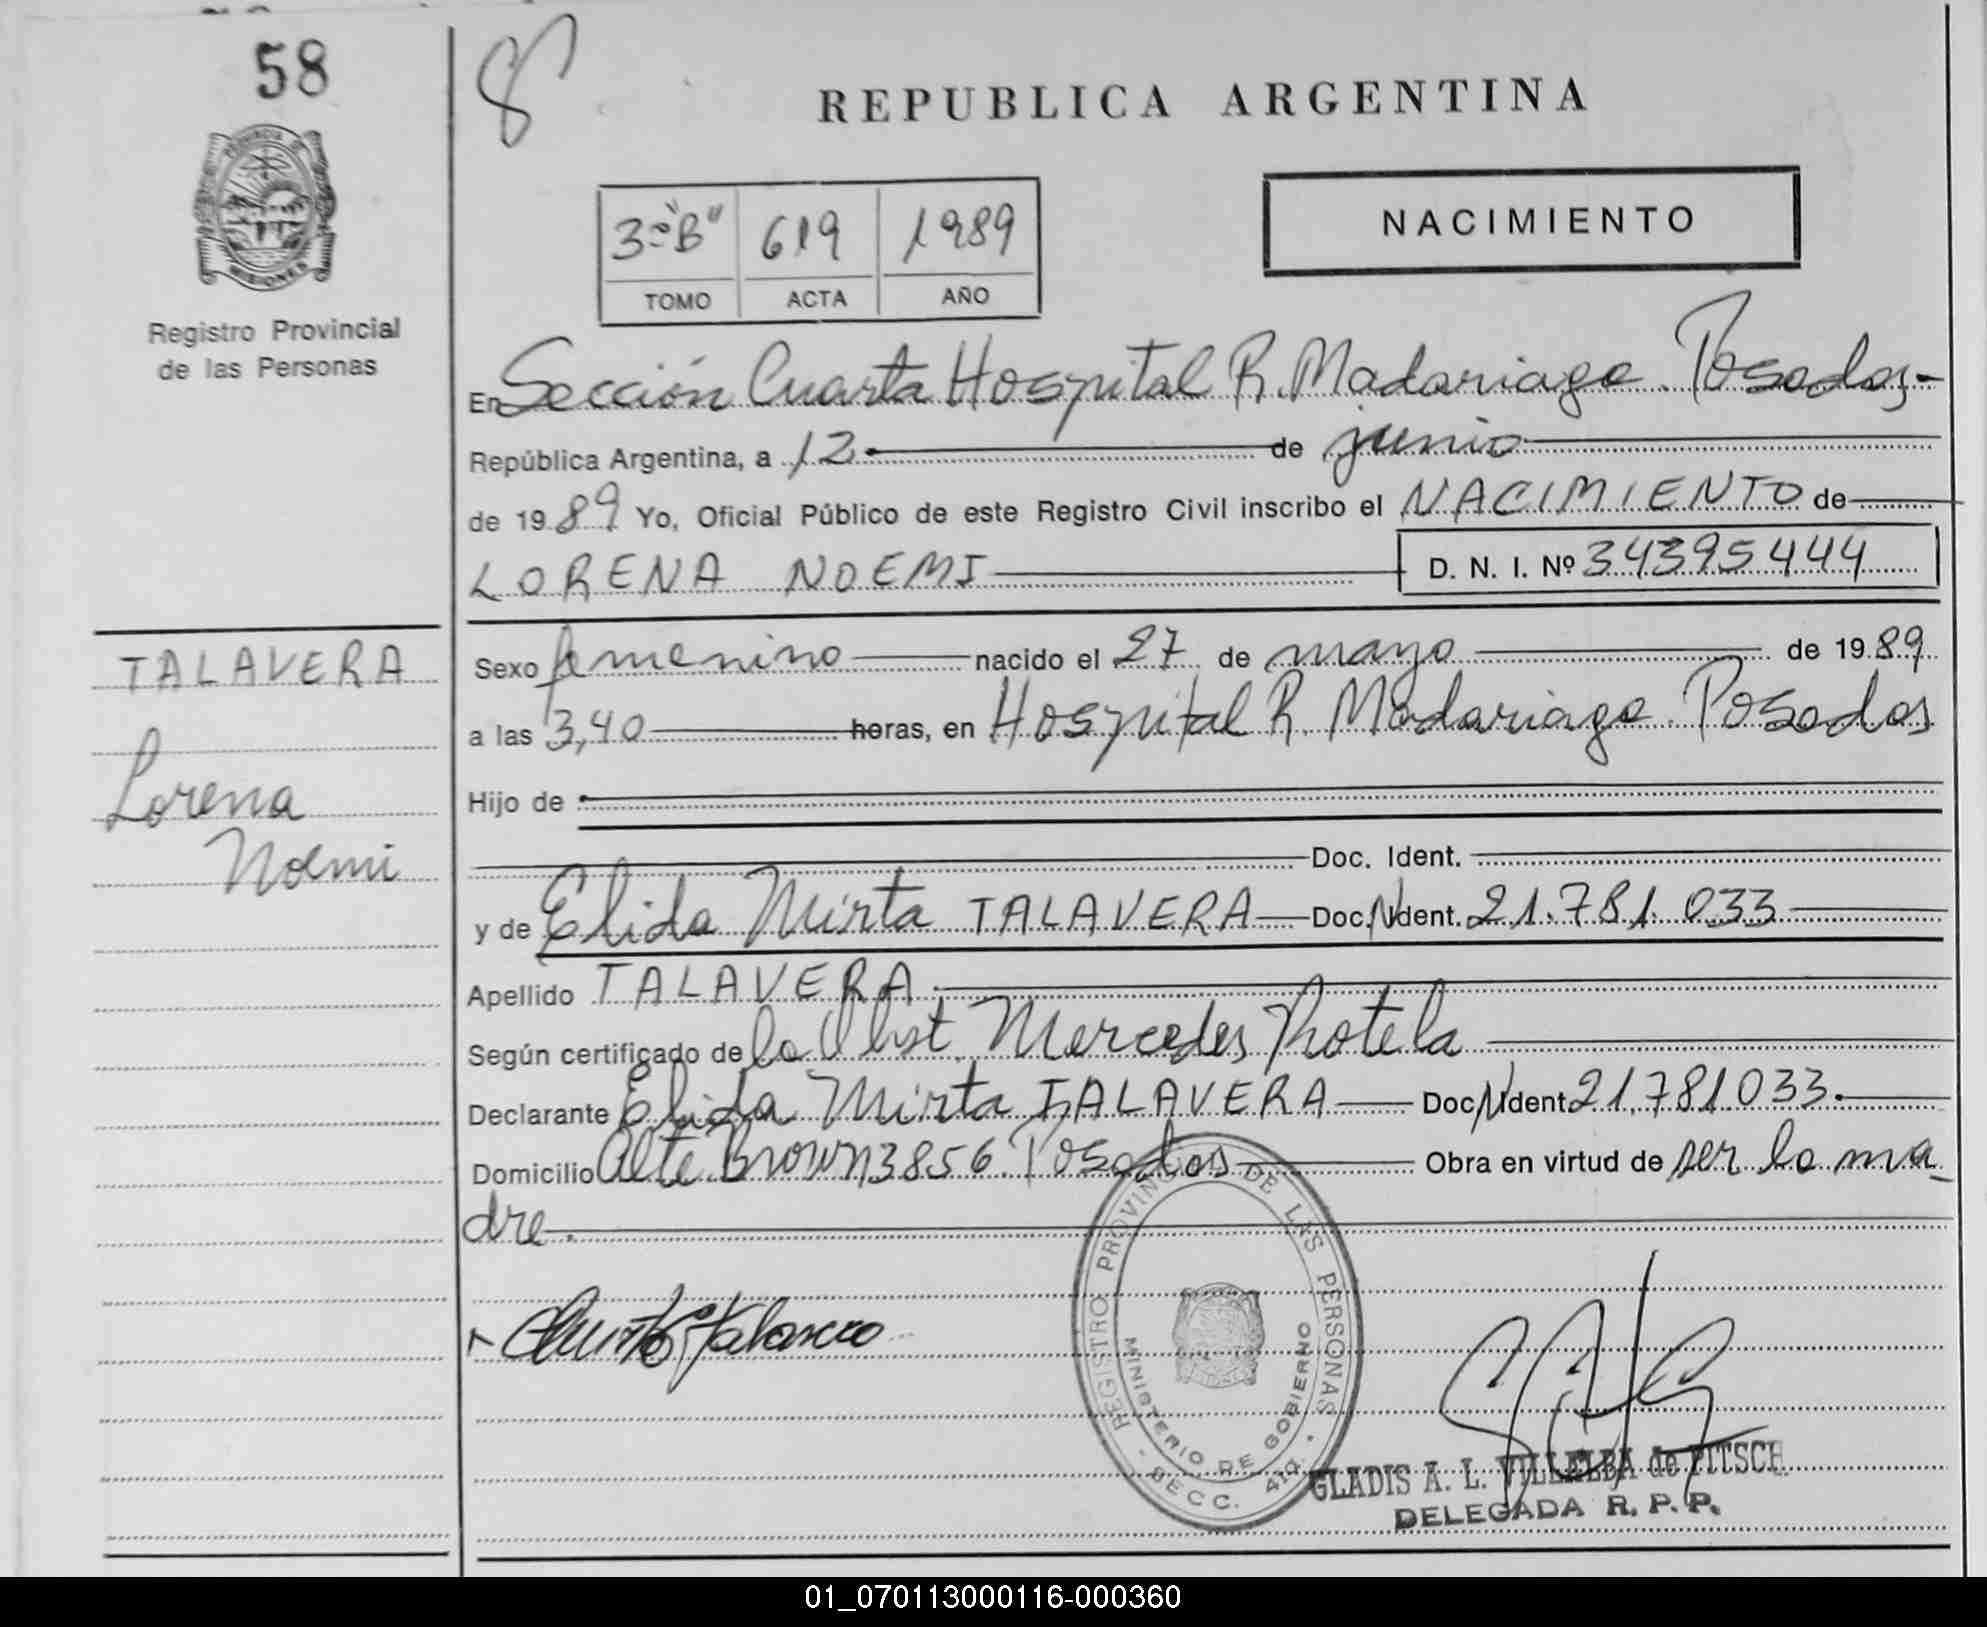 58
REPUBLICA ARGENTINA
PROVINCIA DE
MISIONES
Registro Provincial
de las Personas
3º "B" 619 1989
TOMO ACTA AÑO
NACIMIENTO
En Sección Cuarta Hospital R. Madariaga. Posadas-
República Argentina, a 12 de junio
de 1989 Yo, Oficial Público de este Registro Civil inscribo el NACIMIENTO de
LORENA NOEMI D. N. I. Nº 34395444
TALAVERA
Lorena
Noemi
Sexo femenino nacido el 27 de mayo de 1989
a las 3,40 horas, en Hospital R. Madariaga. Posadas
Hijo de
Doc. Ident.
y de Elida Mirta TALAVERA Doc. N Ident. 21.781.033
Apellido TALAVERA
Según certificado de la Obst. Mercedes Rotela
Declarante Elida Mirta TALAVERA Doc. N Ident. 21.781.033.
Domicilio Alte. Brown 3856. Posadas Obra en virtud de ser la ma-
dre.
REGISTRO PROVINCIAL DE LAS PERSONAS
MINISTERIO DE GOBIERNO
SECC. 4ta.
GLADIS A. L. VILLALBA de PITSCH
DELEGADA R. P. P.
01_070113000116-000360